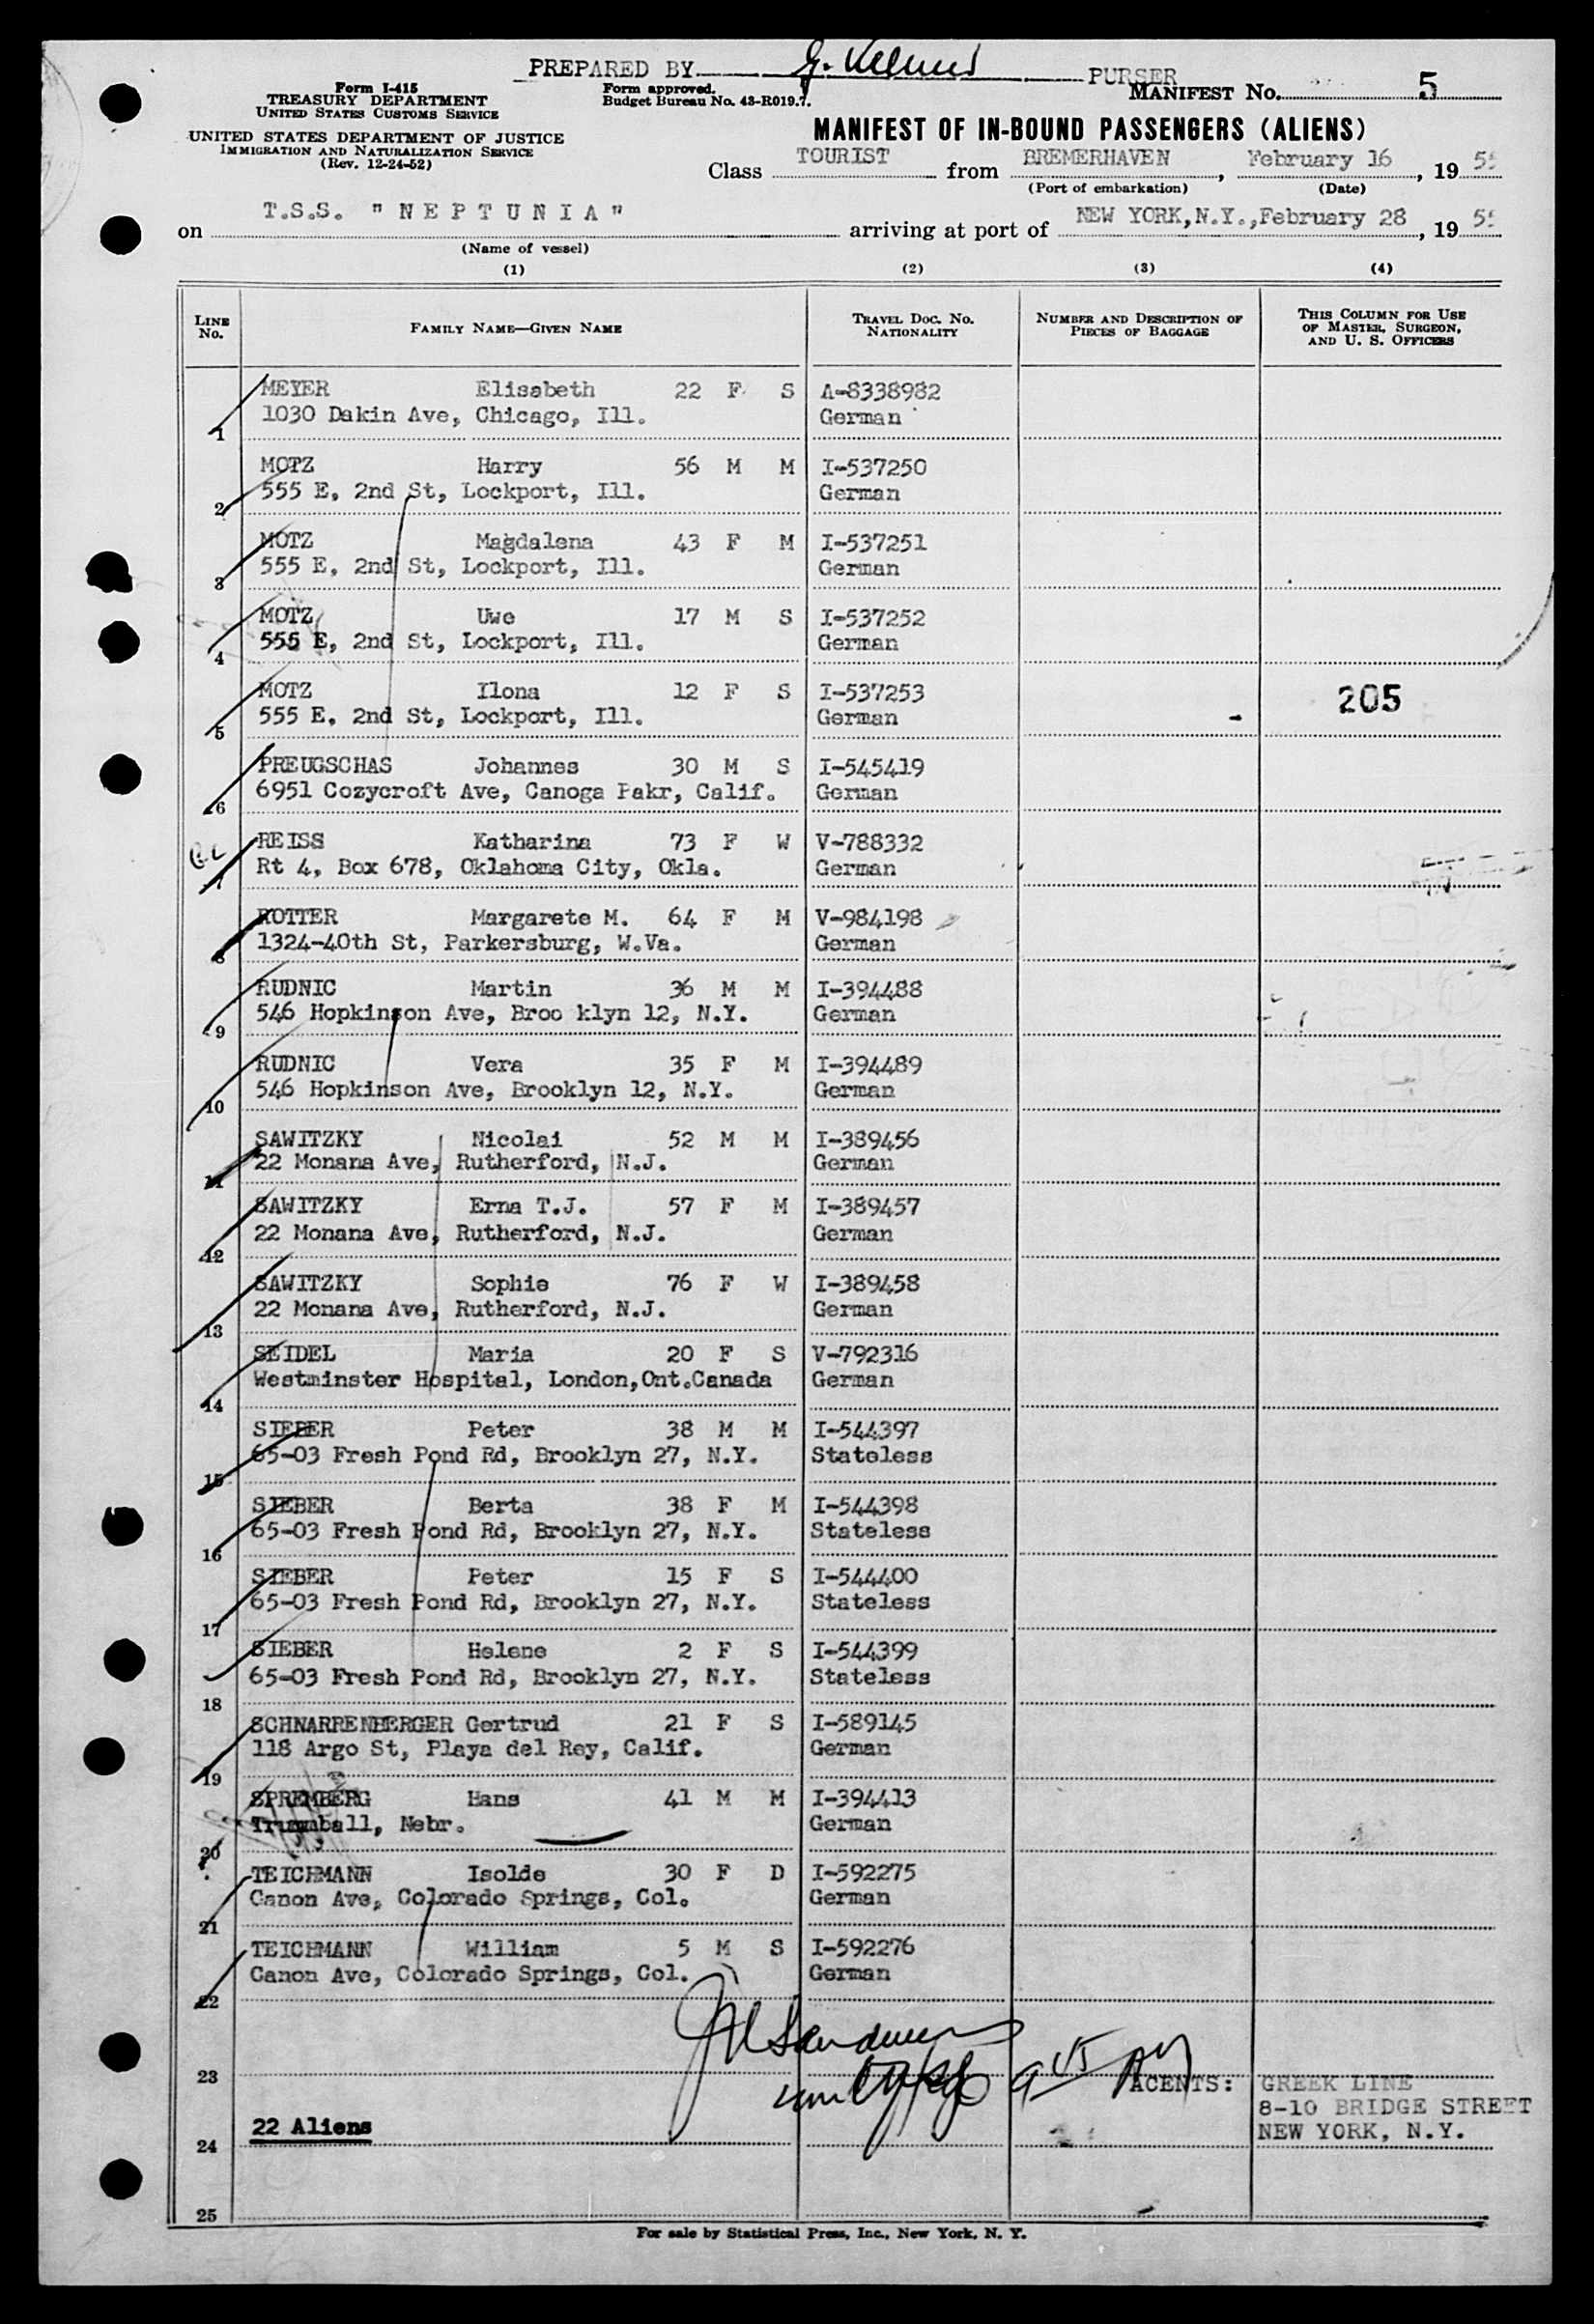 PREPARED BY G. PURSER
Form I-415
TREASURY DEPARTMENT
UNITED STATES CUSTOMS SERVICE
UNITED STATES DEPARTMENT OF JUSTICE
IMMIGRATION AND NATURALIZATION SERVICE
(Rev. 12-24-52)
Form approved.
Budget Bureau No. 43-R019.7.
MANIFEST No. 5
MANIFEST OF IN-BOUND PASSENGERS (ALIENS)
Class TOURIST from BREMERHAVEN, February 16, 19 55
(Port of embarkation) (Date)
on T.S.S. "NEPTUNIA" arriving at port of NEW YORK,N.Y.,February 28, 19 55
(Name of vessel)
(1) (2) (3) (4)
LINE No. FAMILY NAME—GIVEN NAME TRAVEL DOC. NO. NATIONALITY NUMBER AND DESCRIPTION OF PIECES OF BAGGAGE THIS COLUMN FOR USE OF MASTER, SURGEON, AND U. S. OFFICERS
MEYER Elisabeth 22 F S A-8338982
1 1030 Dakin Ave, Chicago, Ill. German
MOTZ Harry 56 M M I-537250
2 555 E, 2nd St, Lockport, Ill. German
MOTZ Magdalena 43 F M I-537251
3 555 E, 2nd St, Lockport, Ill. German
MOTZ Uwe 17 M S I-537252
4 555 E, 2nd St, Lockport, Ill. German
MOTZ Ilona 12 F S I-537253 205
5 555 E, 2nd St, Lockport, Ill. German
PREUGSCHAS Johannes 30 M S I-545419
6 6951 Cozycroft Ave, Canoga Pakr, Calif. German
REISS Katharina 73 F W V-788332
7 Rt 4, Box 678, Oklahoma City, Okla. German
ROTTER Margarete M. 64 F M V-984198
8 1324-40th St, Parkersburg, W.Va. German
RUDNIC Martin 36 M M I-394488
9 546 Hopkinson Ave, Broo klyn 12, N.Y. German
RUDNIC Vera 35 F M I-394489
10 546 Hopkinson Ave, Brooklyn 12, N.Y. German
SAWITZKY Nicolai 52 M M I-389456
11 22 Monana Ave, Rutherford, N.J. German
SAWITZKY Erna T.J. 57 F M I-389457
12 22 Monana Ave, Rutherford, N.J. German
SAWITZKY Sophie 76 F W I-389458
13 22 Monana Ave, Rutherford, N.J. German
SEIDEL Maria 20 F S V-792316
14 Westminster Hospital, London,Ont.Canada German
SIEBER Peter 38 M M I-544397
15 65-03 Fresh Pond Rd, Brooklyn 27, N.Y. Stateless
SIEBER Berta 38 F M I-544398
16 65-03 Fresh Pond Rd, Brooklyn 27, N.Y. Stateless
SIEBER Peter 15 F S I-544400
17 65-03 Fresh Pond Rd, Brooklyn 27, N.Y. Stateless
SIEBER Helene 2 F S I-544399
18 65-03 Fresh Pond Rd, Brooklyn 27, N.Y. Stateless
SCHNARRENBERGER Gertrud 21 F S I-589145
19 118 Argo St, Playa del Rey, Calif. German
SPREMBERG Hans 41 M M I-394413
20 Trumball, Nebr. German
TEICHMANN Isolde 30 F D I-592275
21 Canon Ave, Colorado Springs, Col. German
TEICHMANN William 5 M S I-592276
22 Canon Ave, Colorado Springs, Col. German
23 AGENTS: GREEK LINE
8-10 BRIDGE STREET
24 22 Aliens NEW YORK, N.Y.
25
For sale by Statistical Press, Inc., New York, N. Y.